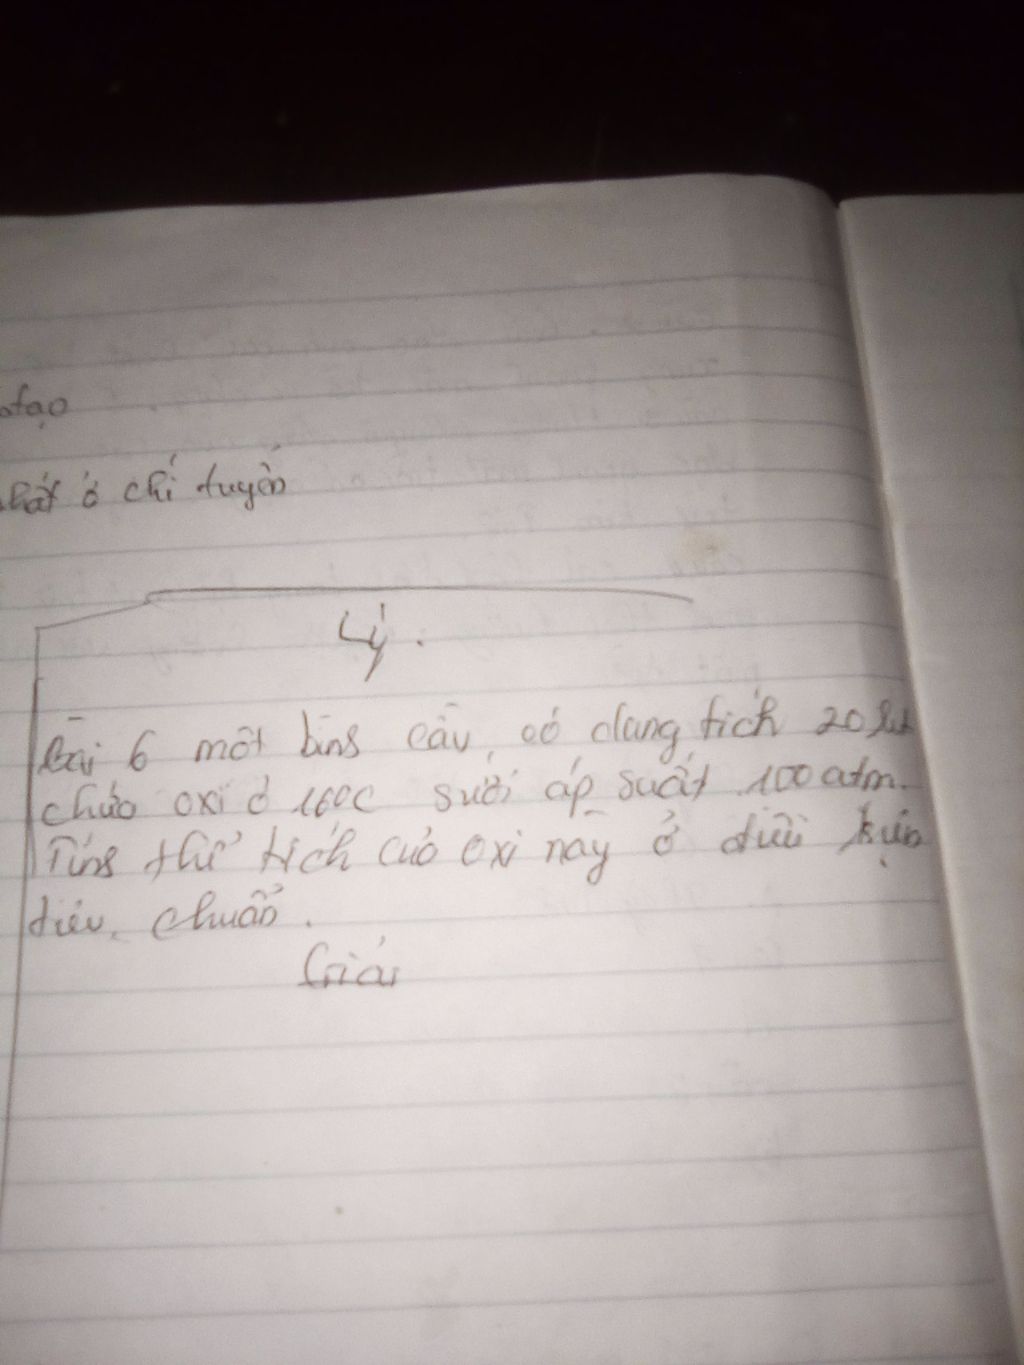 tạo
ở chí tuyến
Lý.
Bài 6 một bìng cầu, có dung tích 20 lít
chứa oxi ở 160C sưới áp suất 100 atm.
Tíng thể tích củo oxi này ở điều kiện
tiêu chuẩn.
Giải